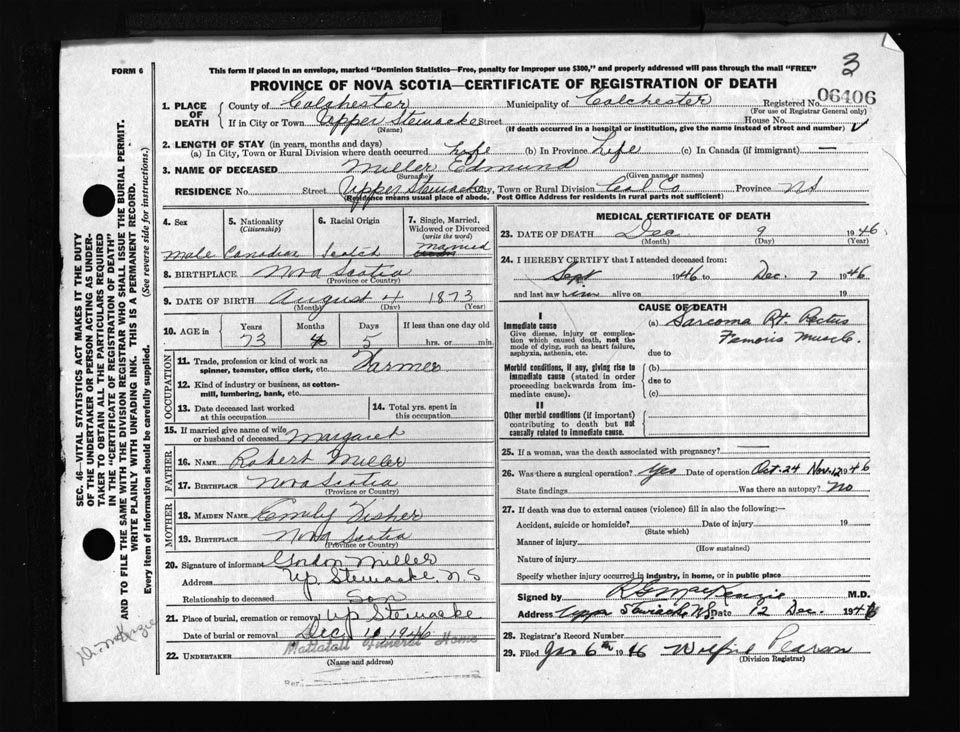 FORM 6
This form if placed in an envelope, marked "Dominion Statistics—Free, penalty for improper use $300," and properly addressed will pass through the mail "FREE"
3
PROVINCE OF NOVA SCOTIA—CERTIFICATE OF REGISTRATION OF DEATH
1. PLACE OF DEATH { County of Colchester Municipality of Colchester Registered No. 06406
(For use of Registrar General only)
If in City or Town Upper Stewiacke Street House No.
(Name) (If death occurred in a hospital or institution, give the name instead of street and number)
2. LENGTH OF STAY (in years, months and days)
(a) In City, Town or Rural Division where death occurred Life (b) In Province Life (c) In Canada (if immigrant) —
3. NAME OF DECEASED Miller Edmund
(Surname) (Given name or names)
RESIDENCE No. Street Upper Stewiacke City, Town or Rural Division Col Co Province NS
(Residence means usual place of abode. Post Office Address for residents in rural parts not sufficient)
4. Sex 5. Nationality (Citizenship) 6. Racial Origin 7. Single, Married, Widowed or Divorced (write the word)
Male Canadian Scotch Married
8. BIRTHPLACE Nova Scotia
(Province or Country)
9. DATE OF BIRTH August 4 1873
(Month) (Day) (Year)
10. AGE in Years Months Days If less than one day old
73 4 5 hrs. or min.
OCCUPATION
11. Trade, profession or kind of work as spinner, teamster, office clerk, etc. Farmer
12. Kind of industry or business, as cotton-mill, lumbering, bank, etc.
13. Date deceased last worked at this occupation
14. Total yrs. spent in this occupation
15. If married give name of wife or husband of deceased Margaret
FATHER
16. NAME Robert Miller
17. BIRTHPLACE Nova Scotia
(Province or Country)
MOTHER
18. MAIDEN NAME Emily Fisher
19. BIRTHPLACE Nova Scotia
(Province or Country)
20. Signature of informant Gordon Miller
Address Up. Stewiacke, N.S
Relationship to deceased Son
21. Place of burial, cremation or removal Up Stewiacke
Date of burial or removal Dec 11 1946
22. UNDERTAKER Mattatall Funeral Home
(Name and address)
MEDICAL CERTIFICATE OF DEATH
23. DATE OF DEATH Dec 9 1946
(Month) (Day) (Year)
24. I HEREBY CERTIFY that I attended deceased from:
Sept 1946 to Dec. 7 1946
and last saw him alive on 19
CAUSE OF DEATH
I
Immediate cause
Give disease, injury or complication which caused death, not the mode of dying, such as heart failure, asphyxia, asthenia, etc.
(a) Sarcoma Rt. Rectus
Femoris Muscle.
due to
Morbid conditions, if any, giving rise to immediate cause (stated in order proceeding backwards from immediate cause)
(b)
due to
(c)
II
Other morbid conditions (if important) contributing to death but not causally related to immediate cause.
25. If a woman, was the death associated with pregnancy?
26. Was there a surgical operation? Yes Date of operation Oct. 24 Nov. 12 1946
State findings Was there an autopsy? No
27. If death was due to external causes (violence) fill in also the following:—
Accident, suicide or homicide? Date of injury 19
(State which)
Manner of injury
(How sustained)
Nature of injury
Specify whether injury occurred in industry, in home, or in public place
Signed by R G MacKenzie M.D.
Address Upper Stewiacke N.S. Date 12 Dec. 1946
28. Registrar's Record Number
29. Filed Jan 6th 1946 Wilfred Pearson
(Division Registrar)
SEC. 46—VITAL STATISTICS ACT MAKES IT THE DUTY
OF THE UNDERTAKER OR PERSON ACTING AS UNDER-
TAKER TO OBTAIN ALL THE PARTICULARS REQUIRED
IN THE "CERTIFICATE OF REGISTRATION OF DEATH"
AND TO FILE THE SAME WITH THE DIVISION REGISTRAR WHO SHALL ISSUE THE BURIAL PERMIT.
WRITE PLAINLY WITH UNFADING INK. THIS IS A PERMANENT RECORD.
Every item of information should be carefully supplied. (See reverse side for instructions.)